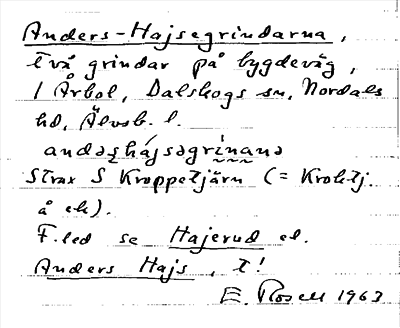 Anders-Hajsegrindarna,
två grindar på bygdeväg,
i Årbol, Dalskogs sn, Nordals
hd, Älvsb. l.
andəʂhájsəgrinanə
Strax S Kroppetjärn (= Kroktj.
å ek).
F.led se Hajerud el.
Anders Hajs, t!
E. Rosell 1963